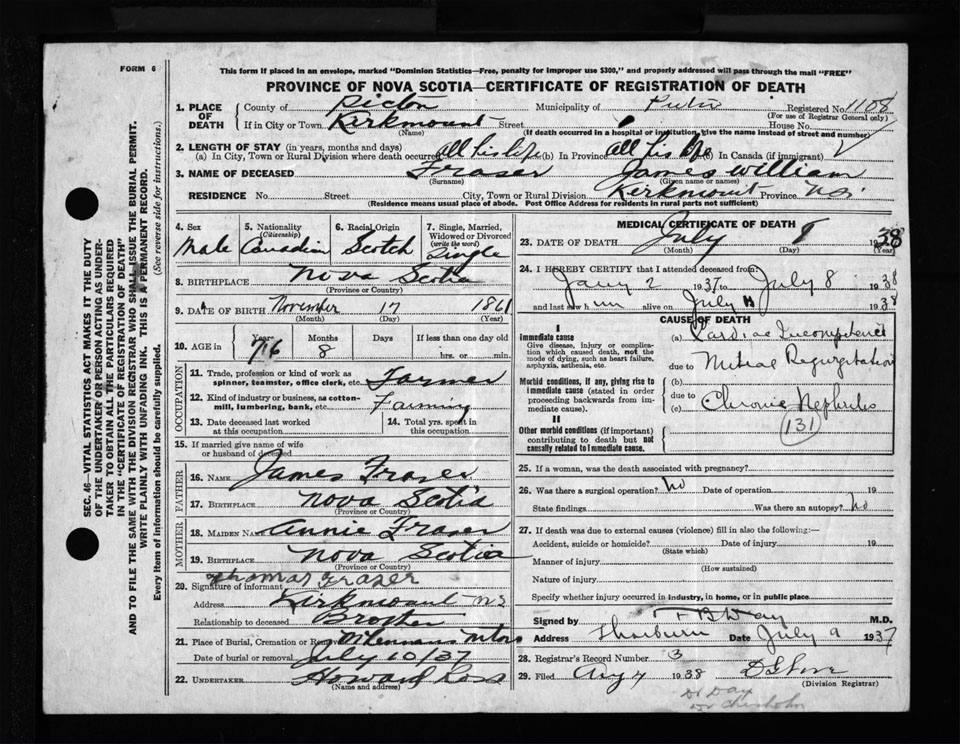 FORM 6
This form if placed in an envelope, marked "Dominion Statistics—Free, penalty for improper use $300," and properly addressed will pass through the mail "FREE"
PROVINCE OF NOVA SCOTIA—CERTIFICATE OF REGISTRATION OF DEATH
1. PLACE OF DEATH County of Pictou Municipality of Pictou Registered No. 1108
(For use of Registrar General only)
If in City or Town Kirkmount Street House No.
(Name) (If death occurred in a hospital or institution, give the name instead of street and number)
2. LENGTH OF STAY (in years, months and days)
(a) In City, Town or Rural Division where death occurred all his life (b) In Province all his life (c) In Canada (if immigrant)
3. NAME OF DECEASED Fraser James William
(Surname) (Given name or names)
RESIDENCE No. Street City, Town or Rural Division Kirkmount Province N.S.
(Residence means usual place of abode. Post Office Address for residents in rural parts not sufficient)
4. Sex Male
5. Nationality (Citizenship) Canadian
6. Racial Origin Scotch
7. Single, Married, Widowed or Divorced (write the word) Single
8. BIRTHPLACE Nova Scotia
(Province or Country)
9. DATE OF BIRTH November 17 1861
(Month) (Day) (Year)
10. AGE in Years 76 Months 8 Days If less than one day old
hrs. or min.
OCCUPATION
11. Trade, profession or kind of work as spinner, teamster, office clerk, etc. Farmer
12. Kind of industry or business, as cotton-mill, lumbering, bank, etc. Farming
13. Date deceased last worked at this occupation
14. Total yrs. spent in this occupation
15. If married give name of wife or husband of deceased
FATHER
16. NAME James Fraser
17. BIRTHPLACE Nova Scotia
(Province or Country)
MOTHER
18. MAIDEN NAME Annie Fraser
19. BIRTHPLACE Nova Scotia
(Province or Country)
Thomas Fraser
20. Signature of informant
Address Kirkmount N S
Relationship to deceased Brother
21. Place of Burial, Cremation or Removal
Date of burial or removal July 10/37
22. UNDERTAKER Howard Ross
(Name and address)
MEDICAL CERTIFICATE OF DEATH
23. DATE OF DEATH July 8 1938
(Month) (Day) (Year)
24. I HEREBY CERTIFY that I attended deceased from:
Jany 2 1937 to July 8 1938
and last saw him alive on July 1938
CAUSE OF DEATH
I
Immediate cause
Give disease, injury or complication which caused death, not the mode of dying, such as heart failure, asphyxia, asthenia, etc.
(a) Cardiac Incompetence
due to Mitral Regurgitation
Morbid conditions, if any, giving rise to immediate cause (stated in order proceeding backwards from immediate cause).
(b)
due to
(c) Chronic Nephritis
131
II
Other morbid conditions (if important) contributing to death but not causally related to immediate cause.
25. If a woman, was the death associated with pregnancy?
26. Was there a surgical operation? No Date of operation 19
State findings Was there an autopsy? No
27. If death was due to external causes (violence) fill in also the following:—
Accident, suicide or homicide? Date of injury 19
(State which)
Manner of injury
(How sustained)
Nature of injury
Specify whether injury occurred in industry, in home, or in public place
Signed by F B Day M.D.
Address Thorburn Date July 9 1937
28. Registrar's Record Number 3
29. Filed Aug 4 1938
(Division Registrar)
Dr Day
Dr Chisholm
SEC. 46—VITAL STATISTICS ACT MAKES IT THE DUTY
OF THE UNDERTAKER OR PERSON ACTING AS UNDER-
TAKER TO OBTAIN ALL THE PARTICULARS REQUIRED
IN THE "CERTIFICATE OF REGISTRATION OF DEATH"
AND TO FILE THE SAME WITH THE DIVISION REGISTRAR WHO SHALL ISSUE THE BURIAL PERMIT.
WRITE PLAINLY WITH UNFADING INK. THIS IS A PERMANENT RECORD.
Every item of information should be carefully supplied. (See reverse side for instructions.)